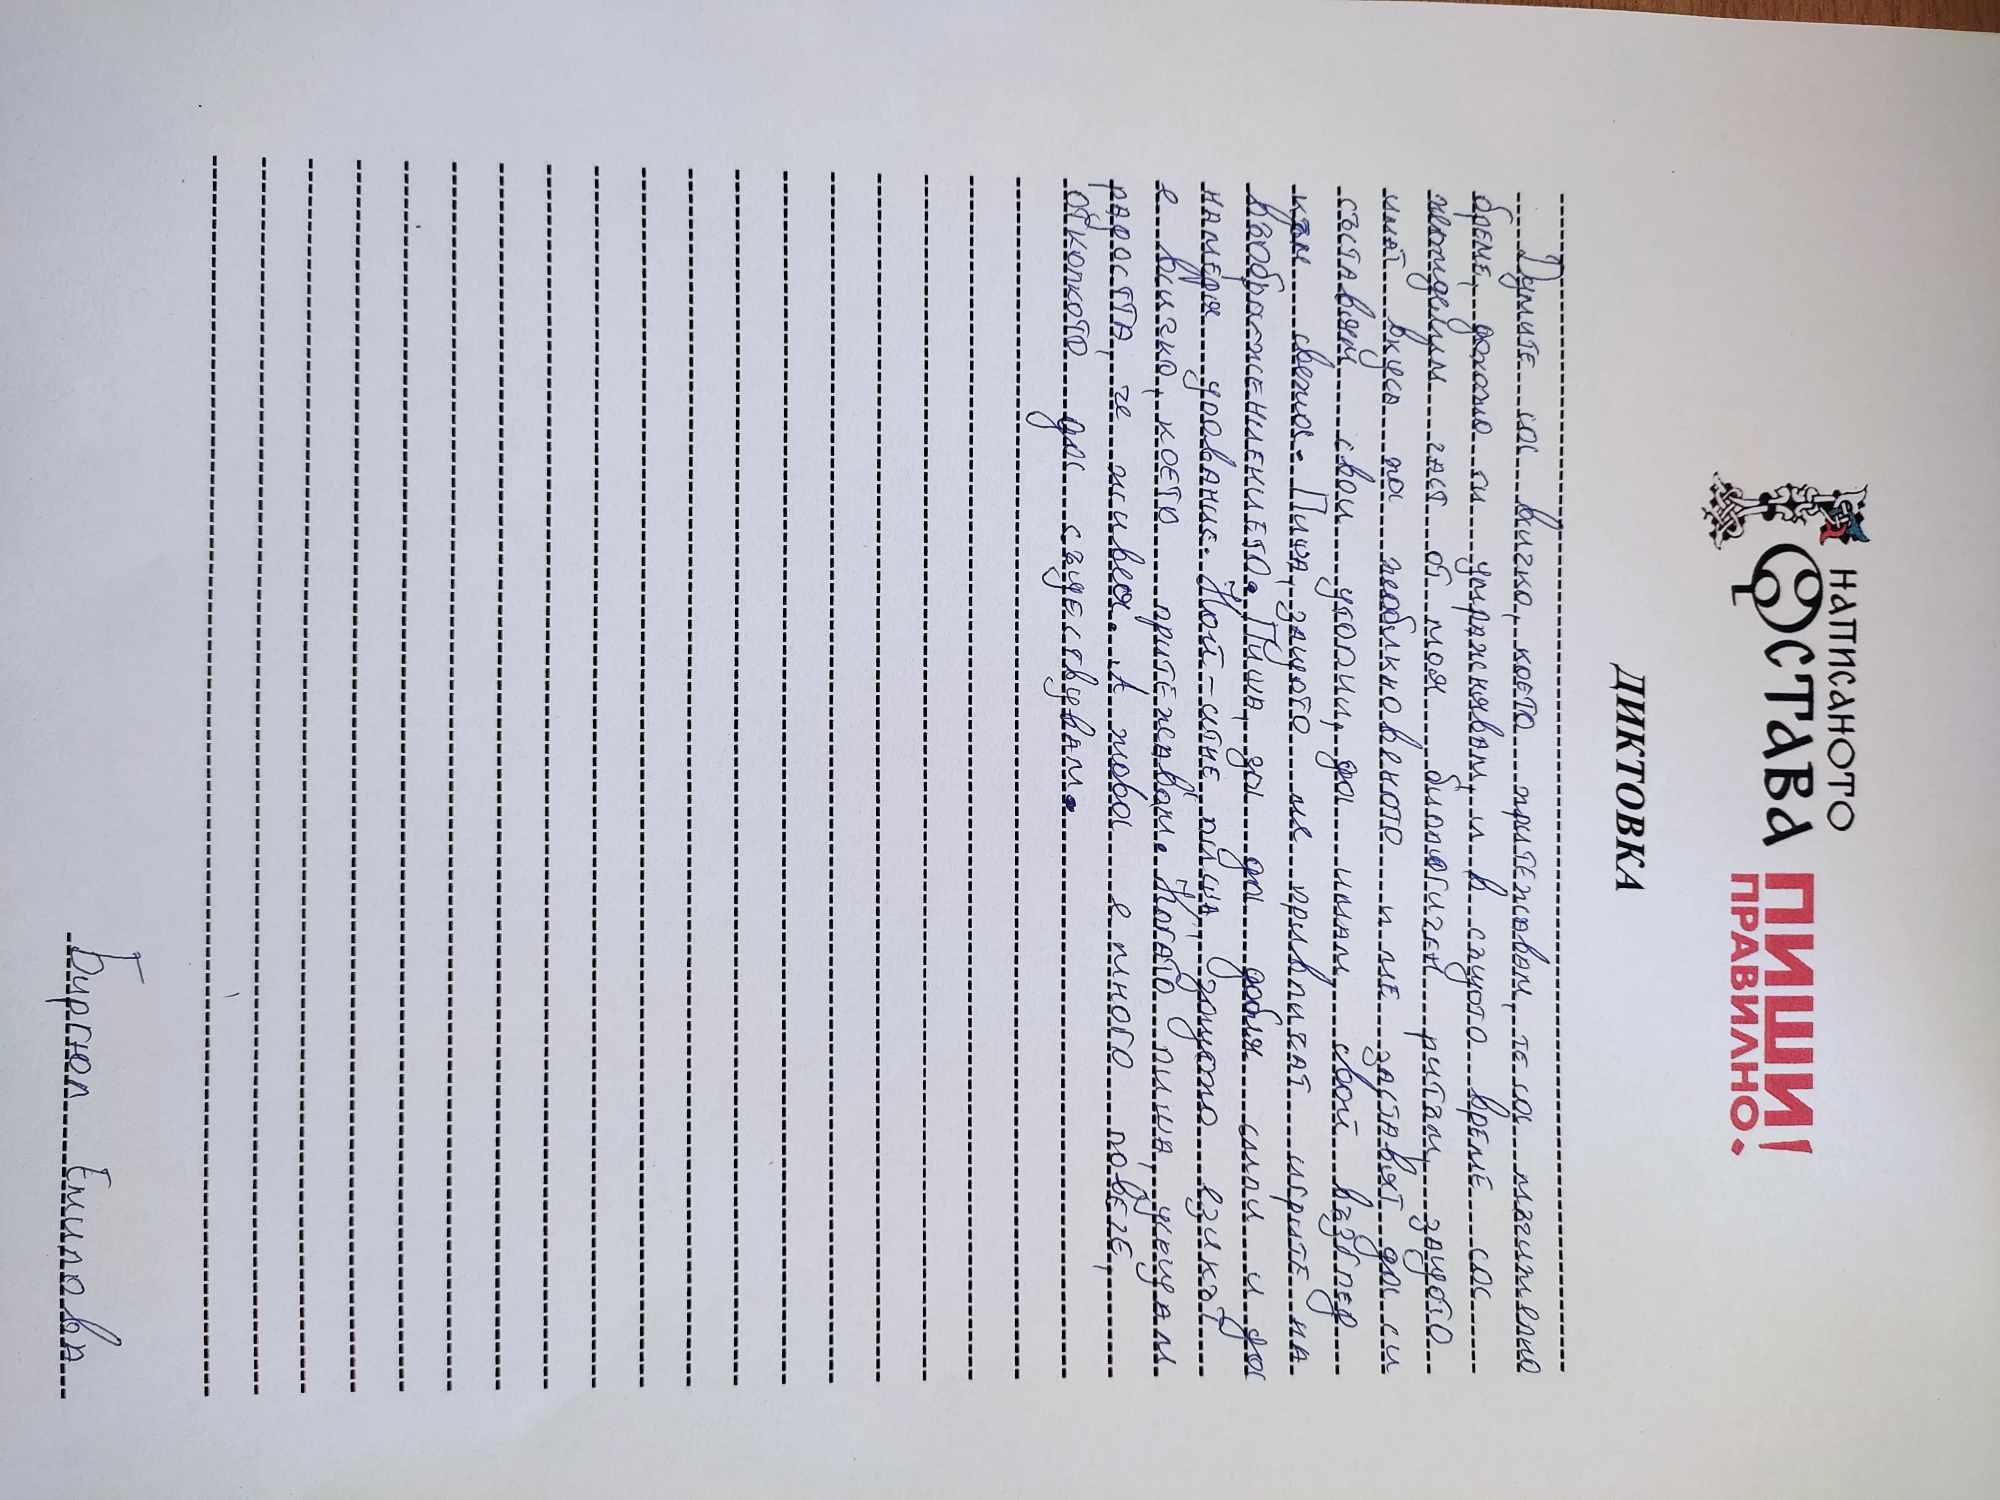 НАПИСАНОТО
ОСТАВА
ПИШИ
ПРАВИЛНО!
ДИКТОВКА
Думите са вичко, което притежавам, те са магчително
бреме, докато ги упражнявам, и в същото време са
неотделим част от моя биологичен ритъм, защото
имат вкуса на необикновеното и ме заставят да си
съставям свои утопии, да имам свой възглед
към света. Пиша, защото ме привличат игрите на
въображениението. Пиша, за да добия сили и да
намеря упование. Най-сетне пиша, защото езикът
е всичко, което притежавам. Когато пиша, усещам
радостта, че живея. А това е много повече,
отколкото да съществувам.
Биргюл Емилова